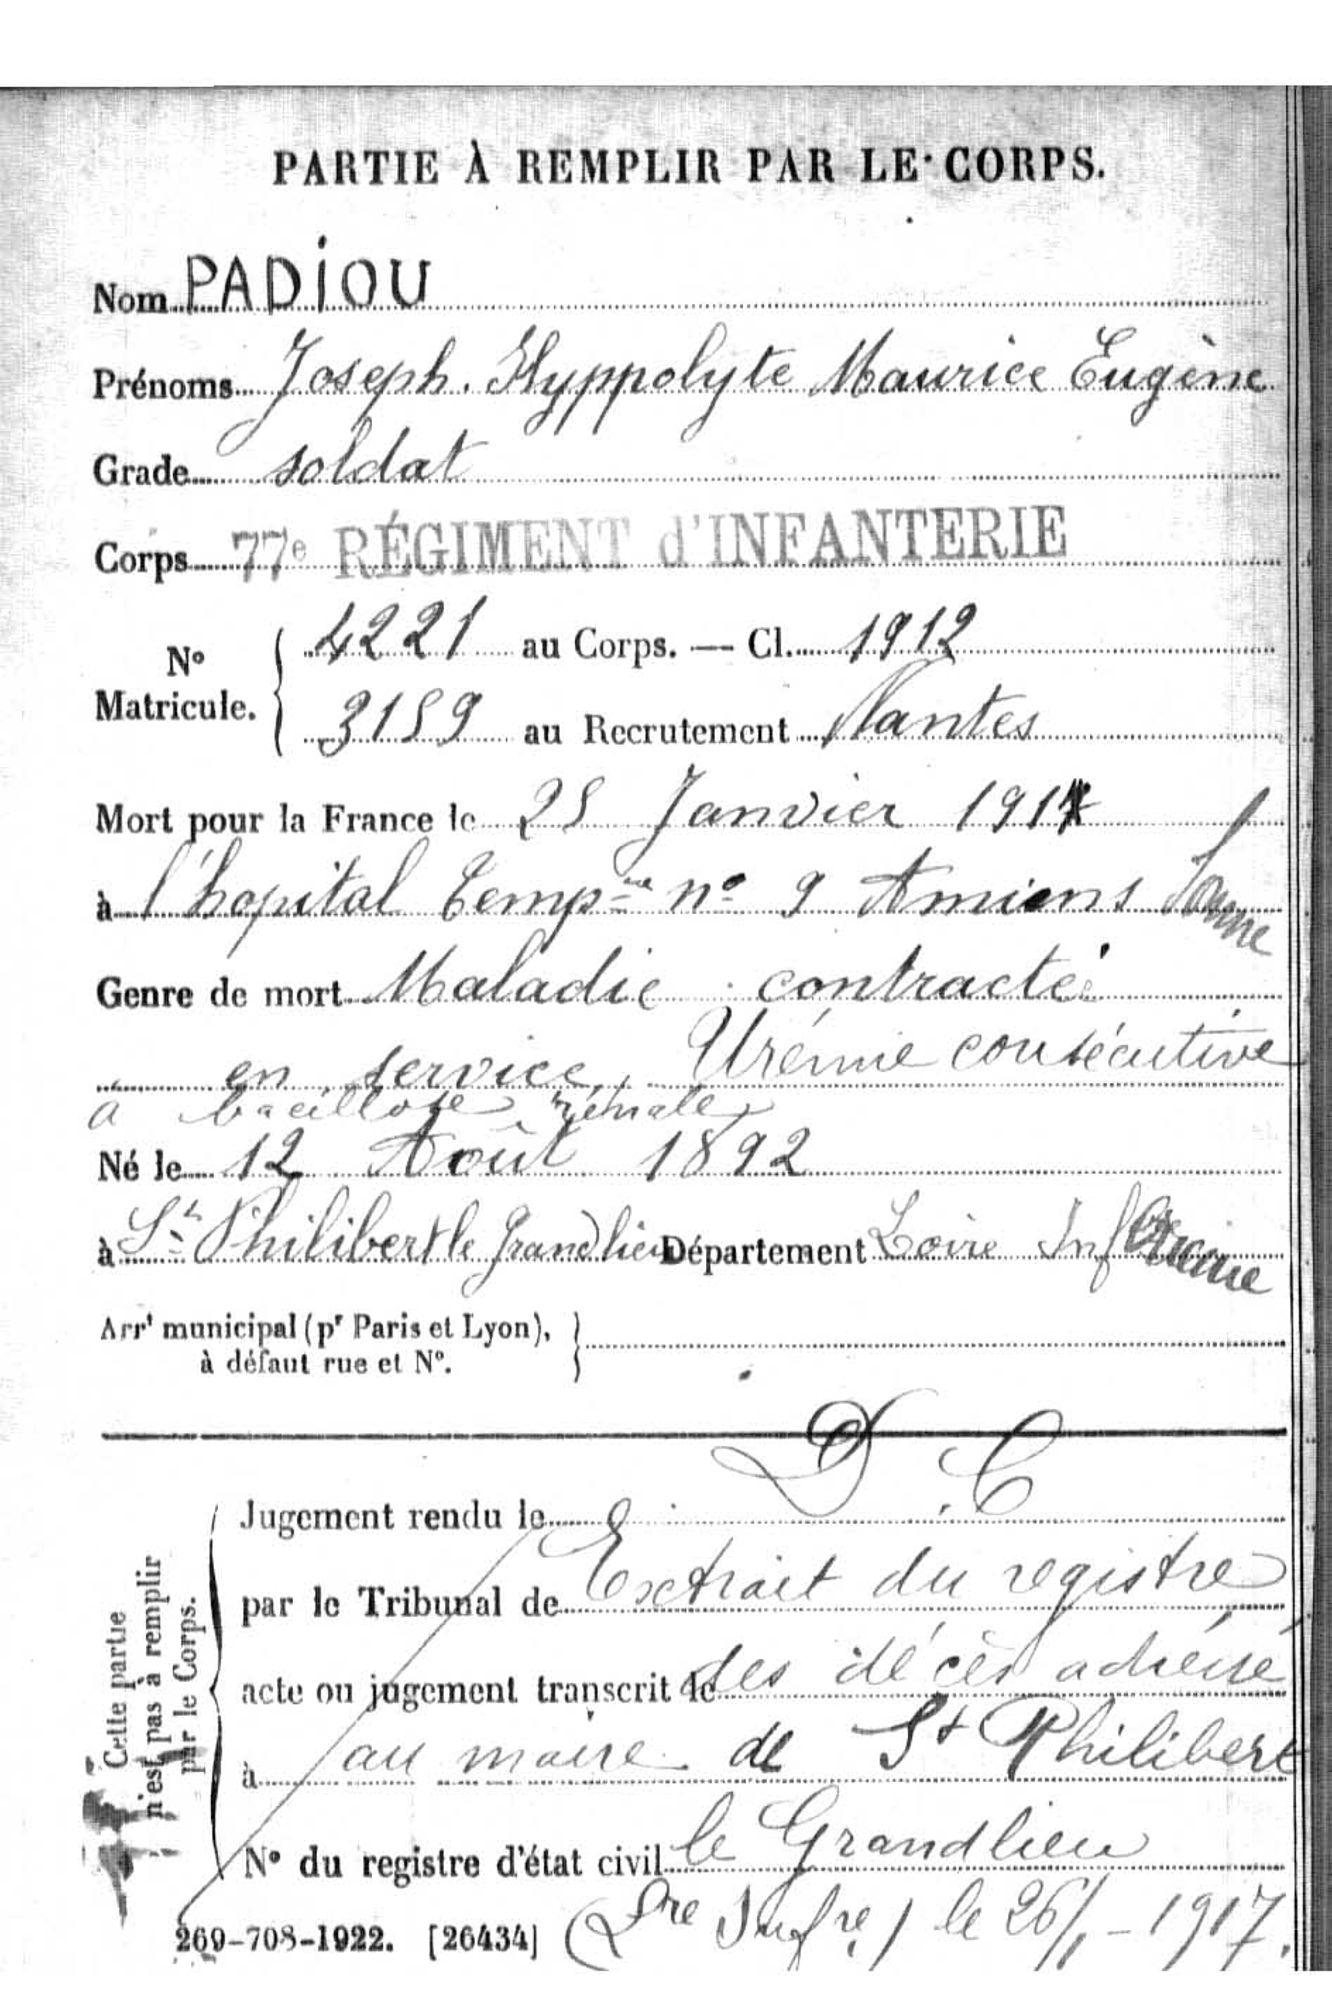 PARTIE À REMPLIR PAR LE CORPS.
Nom PADIOU
Prénoms Joseph. Hyppolyte Maurice Eugène
Grade soldat
Corps 77e RÉGIMENT d'INFANTERIE
No Matricule. 4221 au Corps. — Cl. 1912
3159 au Recrutement Nantes
Mort pour la France le 25 Janvier 1917
à l'hopital Tempre no 9 Amiens Somme
Genre de mort Maladie contractée
en service, Urémie consécutive
à bacillose rénale
Né le 12 Août 1892
à St Philibert le Grand lieu Département Loire Inférieure
Arrt municipal (pr Paris et Lyon),
à défaut rue et No.
D C
Cette partie
n'est pas à remplir
par le Corps.
Jugement rendu le
par le Tribunal de Extrait du registre
acte ou jugement transcrit le des décès adressé
à au maire de St Philibert
No du registre d'état civil le Grandlieu
269-708-1922. [26434] (Lre Infre) le 26/1-1917.